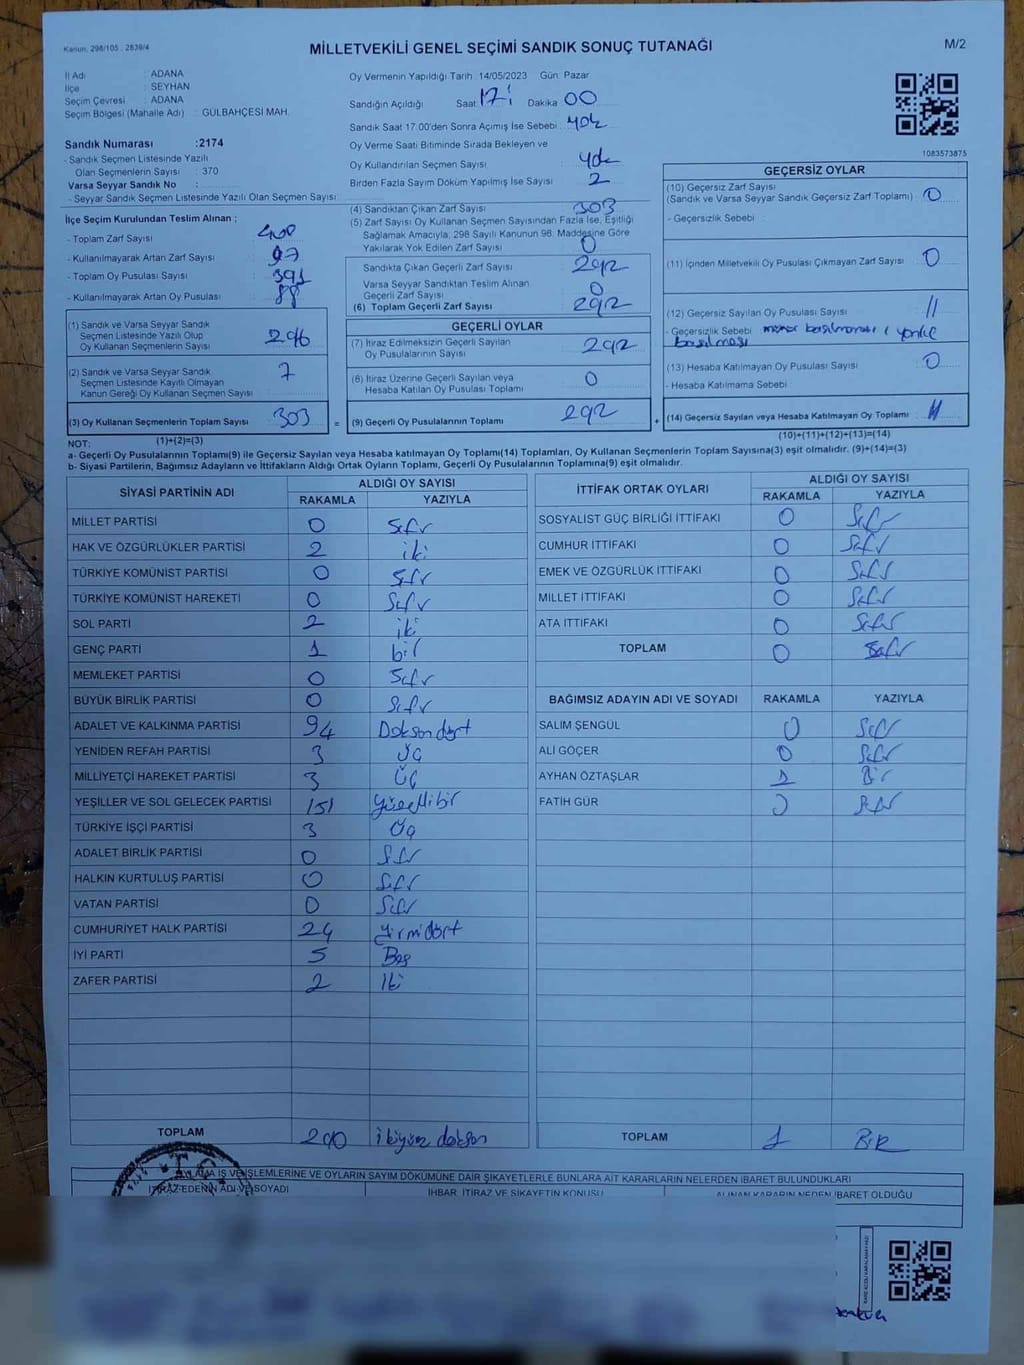 Kanun, 298/105 , 2839/4
MİLLETVEKİLİ GENEL SEÇİMİ SANDIK SONUÇ TUTANAĞI
M/2
İl Adı : ADANA
İlçe : SEYHAN
Seçim Çevresi : ADANA
Seçim Bölgesi (Mahalle Adı) : GÜLBAHÇESİ MAH.
Sandık Numarası :2174
- Sandık Seçmen Listesinde Yazılı
Olan Seçmenlerin Sayısı : 370
Varsa Seyyar Sandık No :
- Seyyar Sandık Seçmen Listesinde Yazılı Olan Seçmen Sayısı :
İlçe Seçim Kurulundan Teslim Alınan ;
- Toplam Zarf Sayısı : 400
- Kullanılmayarak Artan Zarf Sayısı : 97
- Toplam Oy Pusulası Sayısı : 391
- Kullanılmayarak Artan Oy Pusulası : 88
(1) Sandık ve Varsa Seyyar Sandık
Seçmen Listesinde Yazılı Olup
Oy Kullanan Seçmenlerin Sayısı : 296
(2) Sandık ve Varsa Seyyar Sandık
Seçmen Listesinde Kayıtlı Olmayan
Kanun Gereği Oy Kullanan Seçmen Sayısı : 7
(3) Oy Kullanan Seçmenlerin Toplam Sayısı : 303
Oy Vermenin Yapıldığı Tarih :14/05/2023 Gün: Pazar
Sandığın Açıldığı Saat 17: Dakika 00
Sandık Saat 17:00'den Sonra Açımış İse Sebebi : yok
Oy Verme Saati Bitiminde Sırada Bekleyen ve
Oy Kullandırılan Seçmen Sayısı : yok
Birden Fazla Sayım Döküm Yapılmış İse Sayısı : 2
(4) Sandıktan Çıkan Zarf Sayısı : 303
(5) Zarf Sayısı Oy Kullanan Seçmen Sayısından Fazla İse, Eşitliği
Sağlamak Amacıyla, 298 Sayılı Kanunun 98. Maddesine Göre
Yakılarak Yok Edilen Zarf Sayısı : 0
Sandıkta Çıkan Geçerli Zarf Sayısı : 292
Varsa Seyyar Sandıktan Teslim Alınan
Geçerli Zarf Sayısı : 0
(6) Toplam Geçerli Zarf Sayısı : 292
GEÇERLİ OYLAR
(7) İtiraz Edilmeksizin Geçerli Sayılan
Oy Pusulalarının Sayısı : 292
(8) İtiraz Üzerine Geçerli Sayılan veya
Hesaba Katılan Oy Pusulası Toplamı : 0
= (9) Geçerli Oy Pusulalarının Toplamı : 292
1083573875
GEÇERSİZ OYLAR
(10) Geçersiz Zarf Sayısı
(Sandık ve Varsa Seyyar Sandık Geçersiz Zarf Toplamı) : 0
- Geçersizlik Sebebi :
(11) İçinden Milletvekili Oy Pusulası Çıkmayan Zarf Sayısı : 0
(12) Geçersiz Sayılan Oy Pusulası Sayısı : 11
- Geçersizlik Sebebi : mühür basılmaması,
basılması
(13) Hesaba Katılmayan Oy Pusulası Sayısı : 0
- Hesaba Katılmama Sebebi :
+ (14) Geçersiz Sayılan veya Hesaba Katılmayan Oy Toplamı : 11
NOT: (1)+(2)=(3)
(10)+(11)+(12)+(13)=(14)
a- Geçerli Oy Pusulalarının Toplamı(9) ile Geçersiz Sayılan veya Hesaba katılmayan Oy Toplamı(14) Toplamları, Oy Kullanan Seçmenlerin Toplam Sayısına(3) eşit olmalıdır. (9)+(14)=(3)
b- Siyasi Partilerin, Bağımsız Adayların ve İttifakların Aldığı Ortak Oyların Toplamı, Geçerli Oy Pusulalarının Toplamına(9) eşit olmalıdır.
SİYASİ PARTİNİN ADI ALDIĞI OY SAYISI
RAKAMLA YAZIYLA
MİLLET PARTİSİ 0 Sıfır
HAK VE ÖZGÜRLÜKLER PARTİSİ 2 iki
TÜRKİYE KOMÜNİST PARTİSİ 0 Sıfır
TÜRKİYE KOMÜNİST HAREKETİ 0 Sıfır
SOL PARTİ 2 iki
GENÇ PARTİ 1 bir
MEMLEKET PARTİSİ 0 Sıfır
BÜYÜK BİRLİK PARTİSİ 0 Sıfır
ADALET VE KALKINMA PARTİSİ 94 Doksandört
YENİDEN REFAH PARTİSİ 3 Üç
MİLLİYETÇİ HAREKET PARTİSİ 3 Üç
YEŞİLLER VE SOL GELECEK PARTİSİ 151 Yüzellibir
TÜRKİYE İŞÇİ PARTİSİ 3 Üç
ADALET BİRLİK PARTİSİ 0 Sıfır
HALKIN KURTULUŞ PARTİSİ 0 Sıfır
VATAN PARTİSİ 0 Sıfır
CUMHURİYET HALK PARTİSİ 24 Yirmidört
İYİ PARTİ 5 Beş
ZAFER PARTİSİ 2 İki
TOPLAM 290 ikiyüz doksan
İTTİFAK ORTAK OYLARI ALDIĞI OY SAYISI
RAKAMLA YAZIYLA
SOSYALİST GÜÇ BİRLİĞİ İTTİFAKI 0 Sıfır
CUMHUR İTTİFAKI 0 Sıfır
EMEK VE ÖZGÜRLÜK İTTİFAKI 0 Sıfır
MİLLET İTTİFAKI 0 Sıfır
ATA İTTİFAKI 0 Sıfır
TOPLAM 0 Sıfır
BAĞIMSIZ ADAYIN ADI VE SOYADI RAKAMLA YAZIYLA
SALİM ŞENGÜL 0 Sıfır
ALİ GÖÇER 0 Sıfır
AYHAN ÖZTAŞLAR 1 Bir
FATİH GÜR 0 Sıfır
TOPLAM 1 BİR
OYLAMA İŞ VE İŞLEMLERİNE VE OYLARIN SAYIM DÖKÜMÜNE DAİR ŞİKAYETLERLE BUNLARA AİT KARARLARIN NELERDEN İBARET BULUNDUKLARI
İTİRAZ EDENİN ADI VE SOYADI
İHBAR, İTİRAZ VE ŞİKAYETİN KONUSU
ALINAN KARARIN NEDEN İBARET OLDUĞU